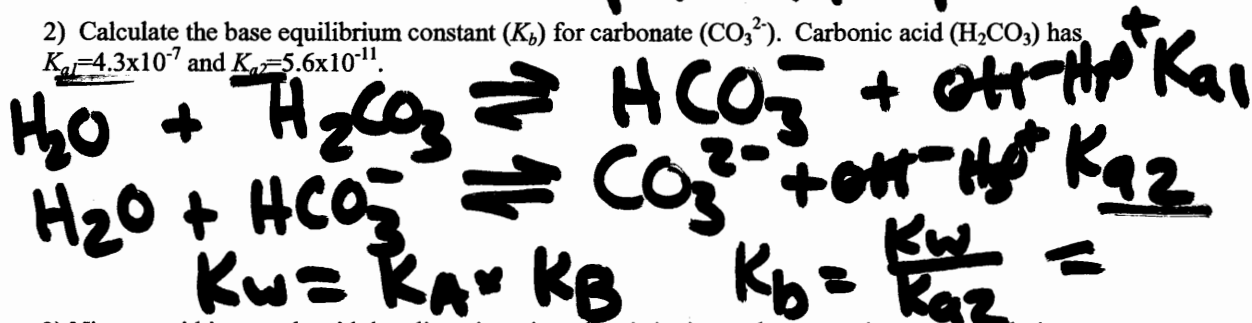 2) Calculate the base equilibrium constant (K_b) for carbonate (CO₃²⁻). Carbonic acid (H₂CO₃) has
K_a1=4.3x10⁻⁷ and K_a2=5.6x10⁻¹¹.
H₂O + H₂CO₃ ⇌ HCO₃⁻ + ~~OH⁻~~ H₃O⁺ Ka1
H₂O + HCO₃⁻ ⇌ CO₃²⁻ + ~~OH⁻~~ H₃O⁺ Ka2
Kw = KA × KB Kb = Kw/Ka2 =